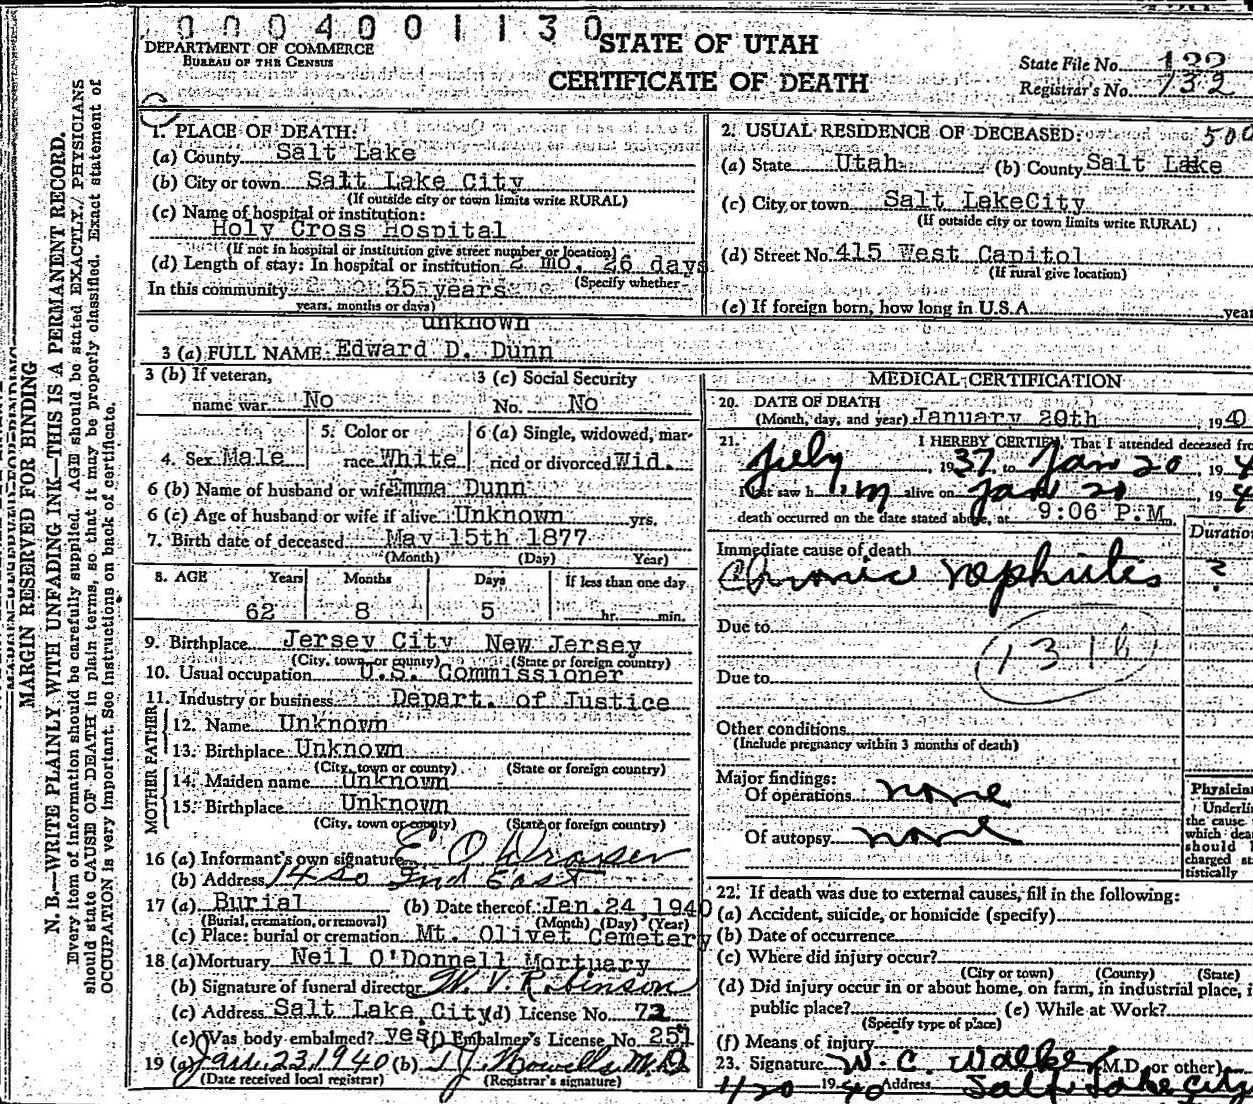 0 0 0 4 0 0 1 1 3 0
DEPARTMENT OF COMMERCE
BUREAU OF THE CENSUS
STATE OF UTAH
CERTIFICATE OF DEATH
State File No. 122
Registrar's No. 132
1. PLACE OF DEATH:
(a) County Salt Lake
(b) City or town Salt Lake City
(If outside city or town limits write RURAL)
(c) Name of hospital or institution:
Holy Cross Hospital
(If not in hospital or institution give street number or location)
(d) Length of stay: In hospital or institution 2 mo. 26 days
(Specify whether
In this community 35 years
years, months or days)
2. USUAL RESIDENCE OF DECEASED: 500
(a) State Utah (b) County Salt Lake
(c) City or town Salt LakeCity
(If outside city or town limits write RURAL)
(d) Street No. 415 West Capitol
(If rural give location)
(e) If foreign born, how long in U.S.A. year
unknown
3 (a) FULL NAME Edward D. Dunn
3 (b) If veteran,
name war No
3 (c) Social Security
No. No
4. Sex Male
5. Color or
race White
6 (a) Single, widowed, mar-
ried or divorced Wid.
6 (b) Name of husband or wife Emma Dunn
6 (c) Age of husband or wife if alive Unknown yrs.
7. Birth date of deceased May 15th 1877
(Month) (Day) Year)
8. AGE Years Months Days If less than one day
62 8 5 hr. min.
9. Birthplace Jersey City New Jersey
(City, town, or county) (State or foreign country)
10. Usual occupation U.S. Commissioner
11. Industry or business Depart. of Justice
FATHER
12. Name Unknown
13. Birthplace Unknown
(City, town or county) (State or foreign country)
MOTHER
14. Maiden name Unknown
15. Birthplace Unknown
(City, town or county) (State or foreign country)
16 (a) Informant's own signature E O
(b) Address 2nd East
17 (a) Burial (b) Date thereof Jan. 24, 1940
(Burial, cremation, or removal) (Month) (Day) (Year)
(c) Place: burial or cremation Mt. Olivet Cemetery
18 (a) Mortuary Neil O'Donnell Mortuary
(b) Signature of funeral director W. V. Robinson
(c) Address Salt Lake City (d) License No. 72
(e) Was body embalmed? yes (f) Embalmer's License No. 251
19 (a) Jan. 23, 1940 (b) M.D.
(Date received local registrar) (Registrar's signature)
MEDICAL CERTIFICATION
20. DATE OF DEATH
(Month, day, and year) January 20th, 1940
21. I HEREBY CERTIFY, That I attended deceased fro
July, 1937 to Jan 20, 194
I last saw him alive on Jan 20, 194
death occurred on the date stated above, at 9:06 P.M.
Duration
Immediate cause of death
Chronic nephritis ?
Due to
131b
Due to
Other conditions
(Include pregnancy within 3 months of death)
Major findings:
Of operations none
Of autopsy none
Physician
Underlin
the cause
which dea
should b
charged st
tistically
22. If death was due to external causes, fill in the following:
(a) Accident, suicide, or homicide (specify)
(b) Date of occurrence
(c) Where did injury occur?
(City or town) (County) (State)
(d) Did injury occur in or about home, on farm, in industrial place, i
public place? (e) While at Work?
(Specify type of place)
(f) Means of injury
23. Signature W. C. Walker (M.D. or other)
1/20 1940 Address Salt Lake City
MARGIN RESERVED FOR BINDING
N. B.—WRITE PLAINLY WITH UNFADING INK—THIS IS A PERMANENT RECORD.
Every item of information should be carefully supplied. AGE should be stated EXACTLY. PHYSICIANS
should state CAUSE OF DEATH in plain terms, so that it may be properly classified. Exact statement of
OCCUPATION is very important. See instructions on back of certificate.